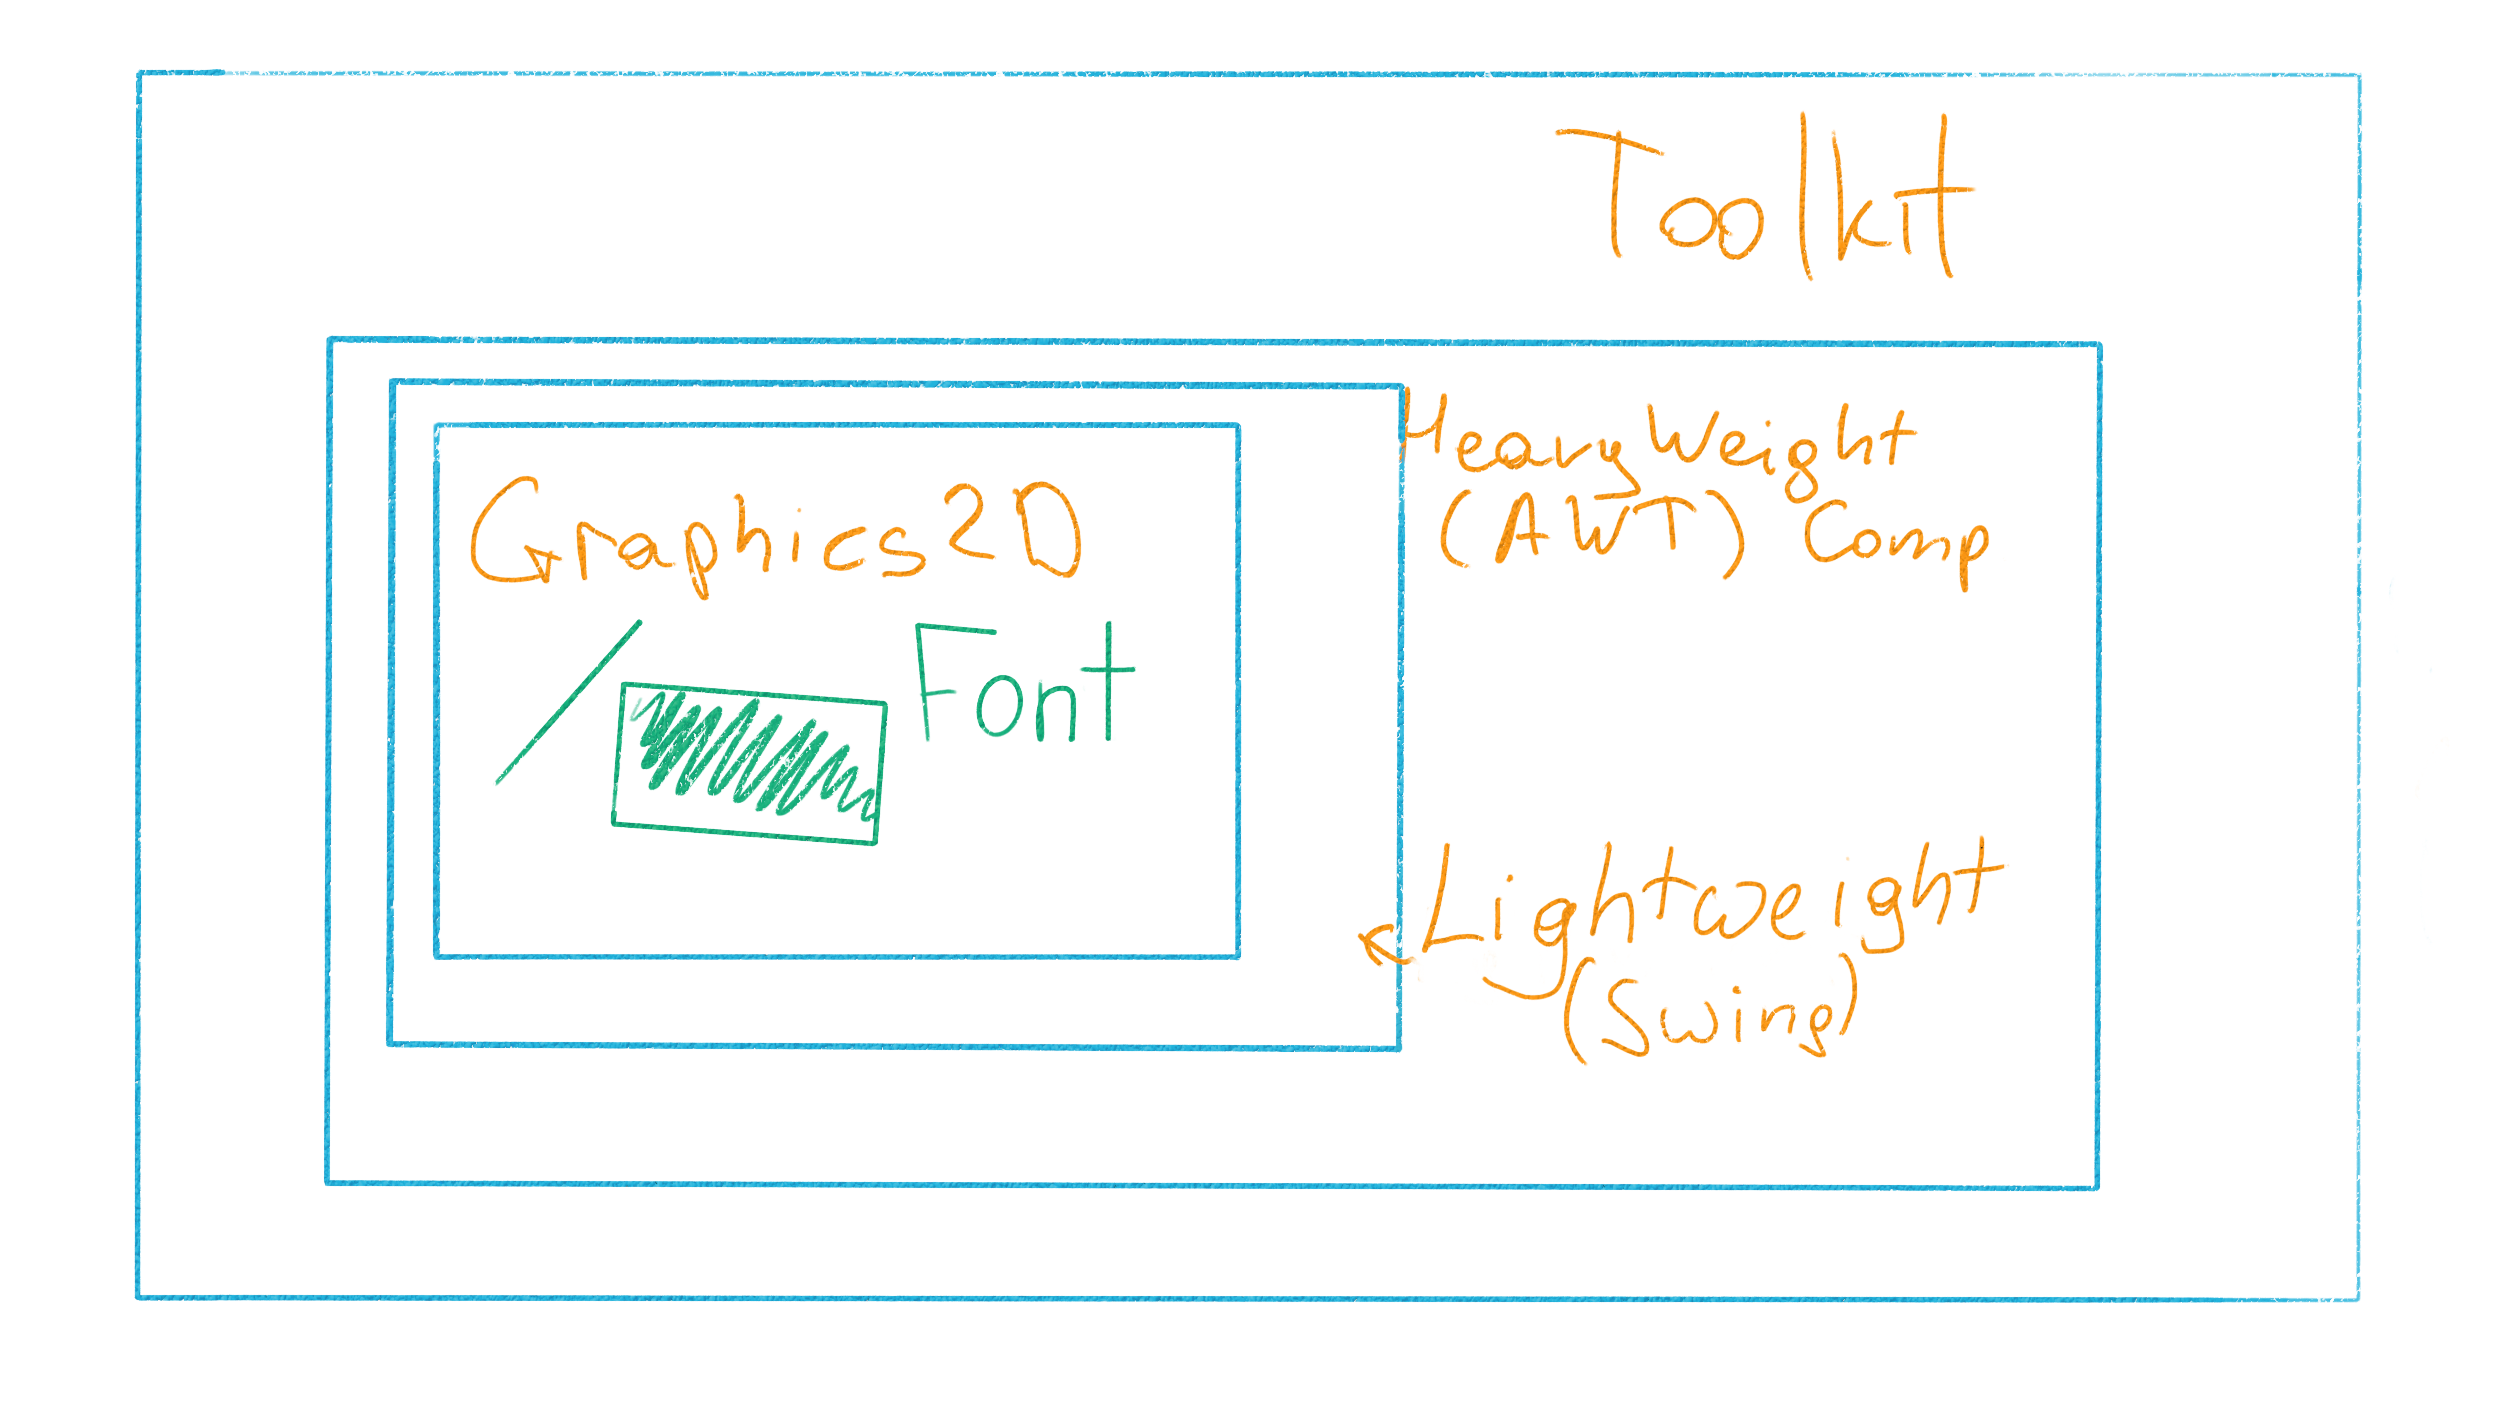 Toolkit
HeavyWeight
(AWT) Comp
Graphics2D
Font
Lightweight
(Swing)